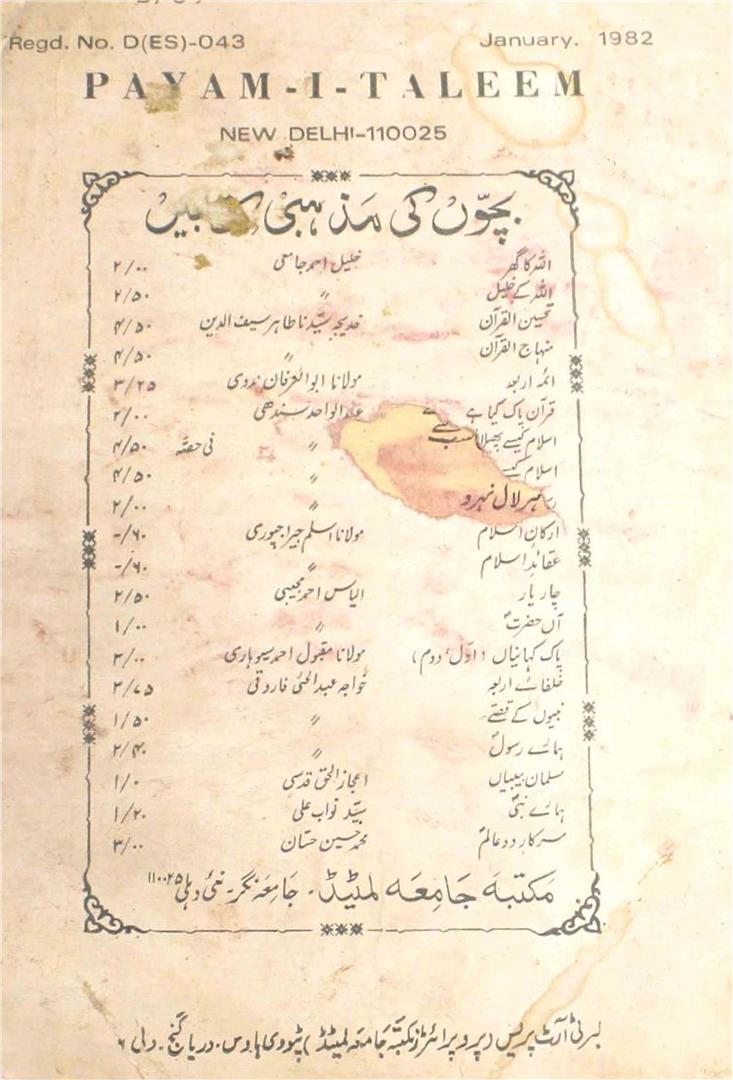 Regd. No. D(ES)-043 January. 1982
PAYAM-I-TALEEM
NEW DELHI-110025
بچّوں کی مذہبی کتابیں
اللہ کا گھر خلیل احمد جامعی ۲/۰۰
اللہ کے خلیل 〃 ۲/۵۰
تحسین القرآن خدیجہ سیّدنا طاہر سیف الدین ۴/۵۰
منہاج القرآن 〃 ۴/۵۰
ائمہ اربعہ مولانا ابوالعرفان ندوی ۳/۲۵
قرآن پاک کیا ہے عبدالواحد سندھی ۲/۰۰
اسلام کیسے پھیلا 〃 فی حصّہ ۴/۵۰
اسلام کیسے 〃 ۴/۵۰
ہرلال نہرو 〃 ۲/۰۰
ارکان اسلام مولانا اسلم جیراجپوری ۔/۶۰
عقائد اسلام 〃 ۔/۶۰
چار یار الیاس احمد مجیبی ۲/۵۰
آں حضرتؐ 〃 ۱/۰۰
پاک کہانیاں (اوّل، دوم) مولانا مقبول احمد سیوہاروی ۳/۰۰
خلفائے اربعہ خواجہ عبدالحئی فاروقی ۳/۷۵
نبیوں کے قصّے 〃 ۱/۵۰
ہمارے رسولؐ 〃 ۲/۴۰
مسلمان بیبیاں اعجاز الحق قدسی ۱/۰
ہمارے نبیؐ سیّد نواب علی ۱/۲۰
سرکار دو عالمؐ محمد حسین حسّان ۳/۰۰
مکتبہ جامعہ لمٹیڈ۔ جامعہ نگر۔ نئی دہلی ۱۱۰۰۲۵
لبرٹی آرٹ پریس (پروپرائٹرز مکتبہ جامعہ لمیٹڈ) پٹودی ہاؤس۔ دریا گنج۔ دہلی ۶